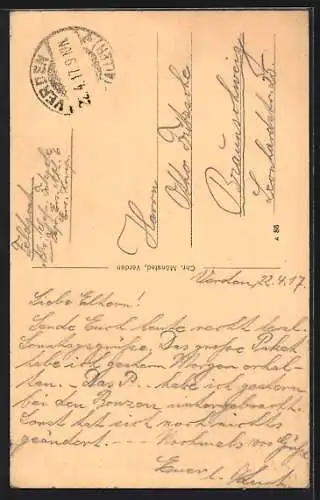 VERDEN
(ALLER)
22.4.17. 9-10 N.
Feldpost
Herrn
Otto
Braunschweig
Leonhardstr.
Chr. Mönsted, Verden
A 86
Verden, 22.4.17.
Liebe Eltern!
Sende Euch heute recht herzl.
Sonntagsgrüße. Das große Paket
habe ich gestern Morgen erhal-
ten. – Das P... habe ich gestern
bei den Bonzen untergebracht.
Sonst hat sich noch nichts
geändert. --- Nochmals vor. Grüße
Euer l.